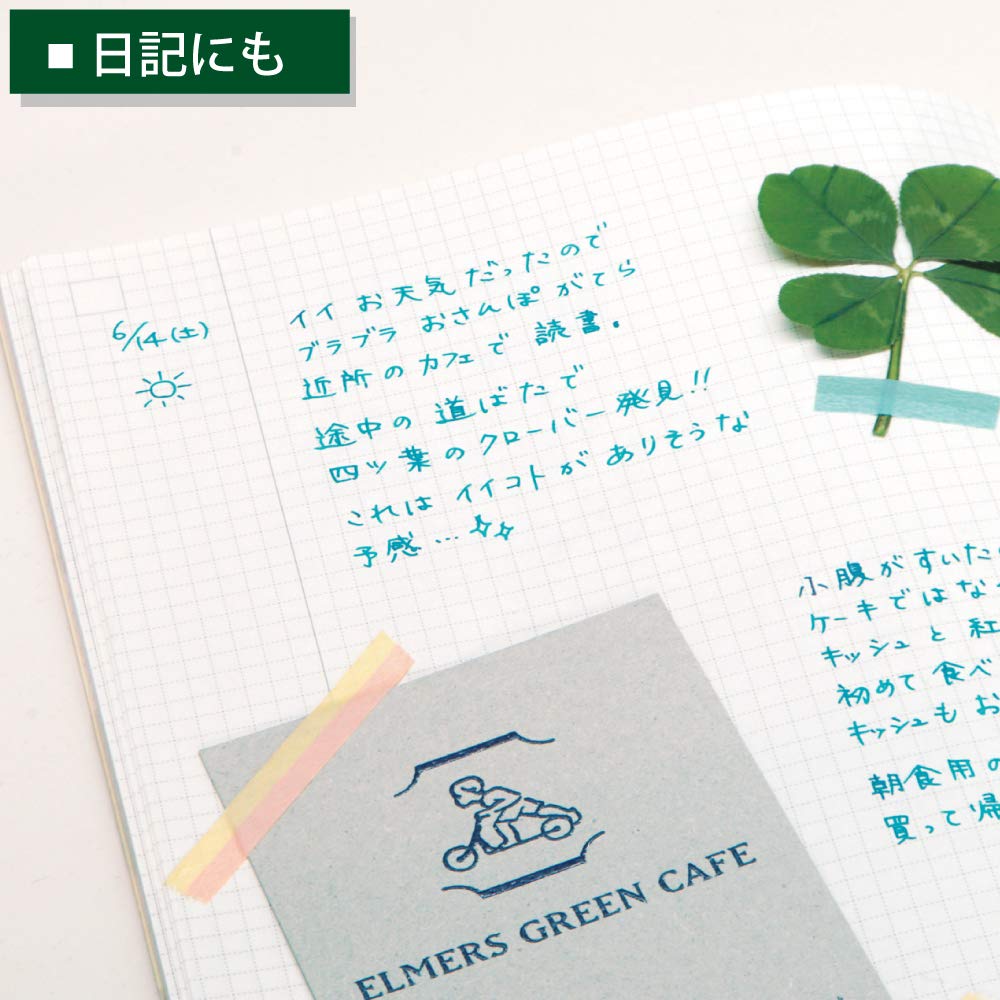 ■ 日記にも
6/14(土)
イイ お天気だったので
ブラブラ おさんぽ がてら
近所のカフェで 読書.
途中の 道ばたで
四ツ葉のクローバー発見!!
これは イイコトが ありそうな
予感…
小腹がすいた
ケーキではな
キッシュと 紅
初めて 食べ
キッシュも お
朝食用の
買って帰
ELMERS GREEN CAFE